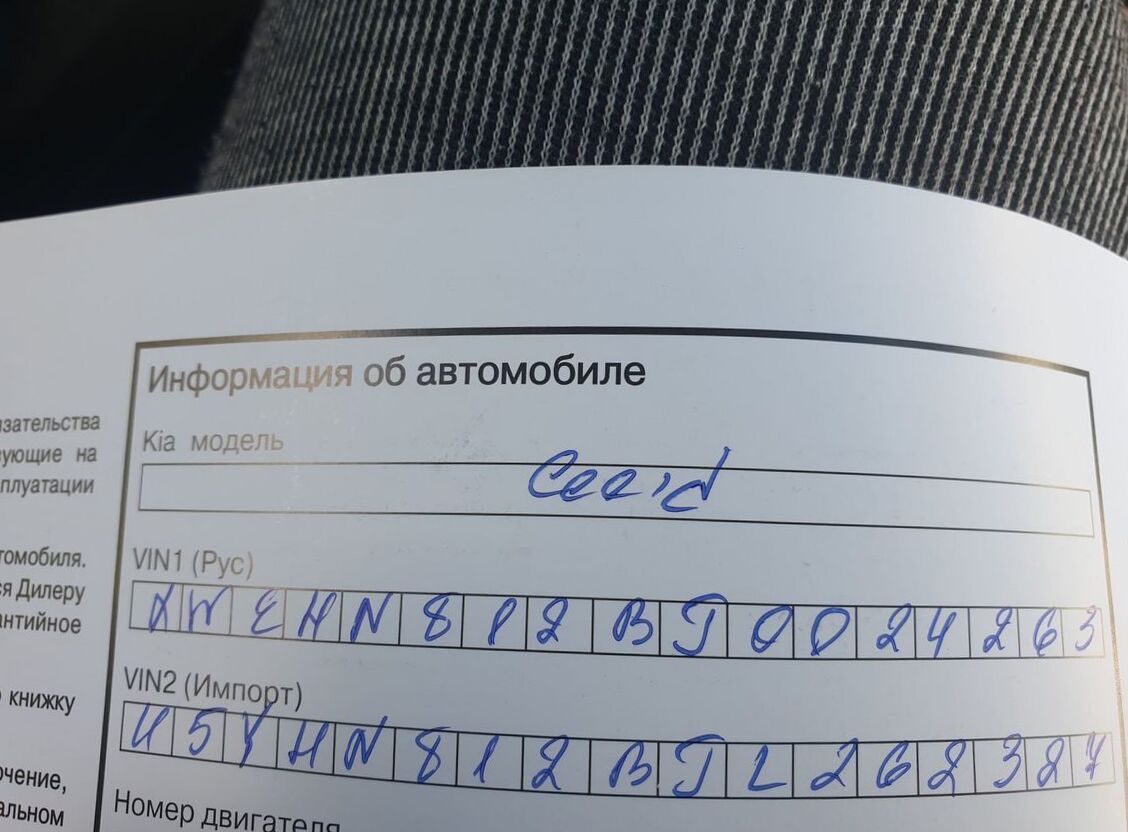 зательства
ующие на
плуатации
томобиля.
ся Дилеру
антийное
книжку
очение,
альном
Информация об автомобиле
Kia модель
Cee'd
VIN1 (Рус)
XWEHN812BJ0024263
VIN2 (Импорт)
U5YHN812BJL262327
Номер двигателя